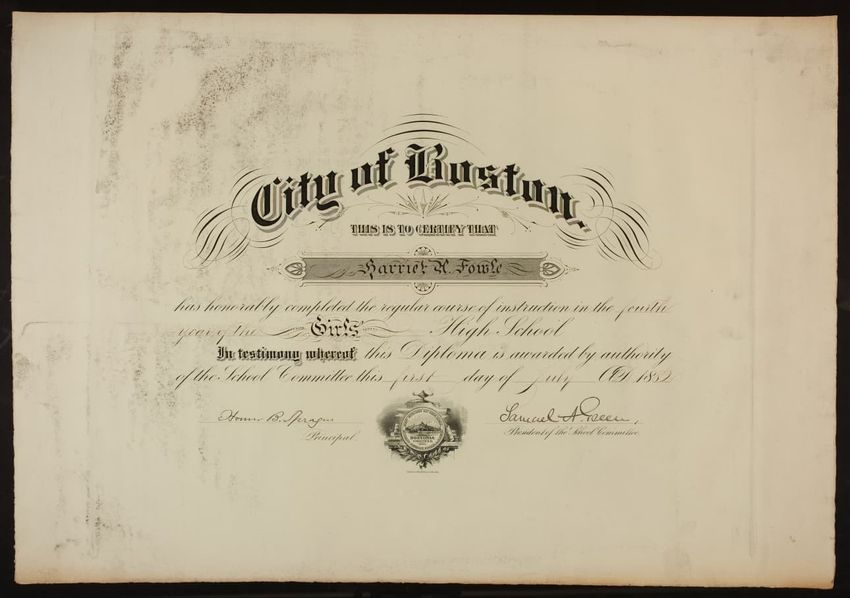 City of Boston.
THIS IS TO CERTIFY THAT
Harriet R. Fowle
has honorably completed the regular course of instruction in the fourth
year of the Girls' High School
In testimony whereof this Diploma is awarded by authority
of the School Committee this first day of July A.D. 1882
Homer B. Sprague
Samuel A. Green,
Principal.
President of the School Committee.
BOSTONIA